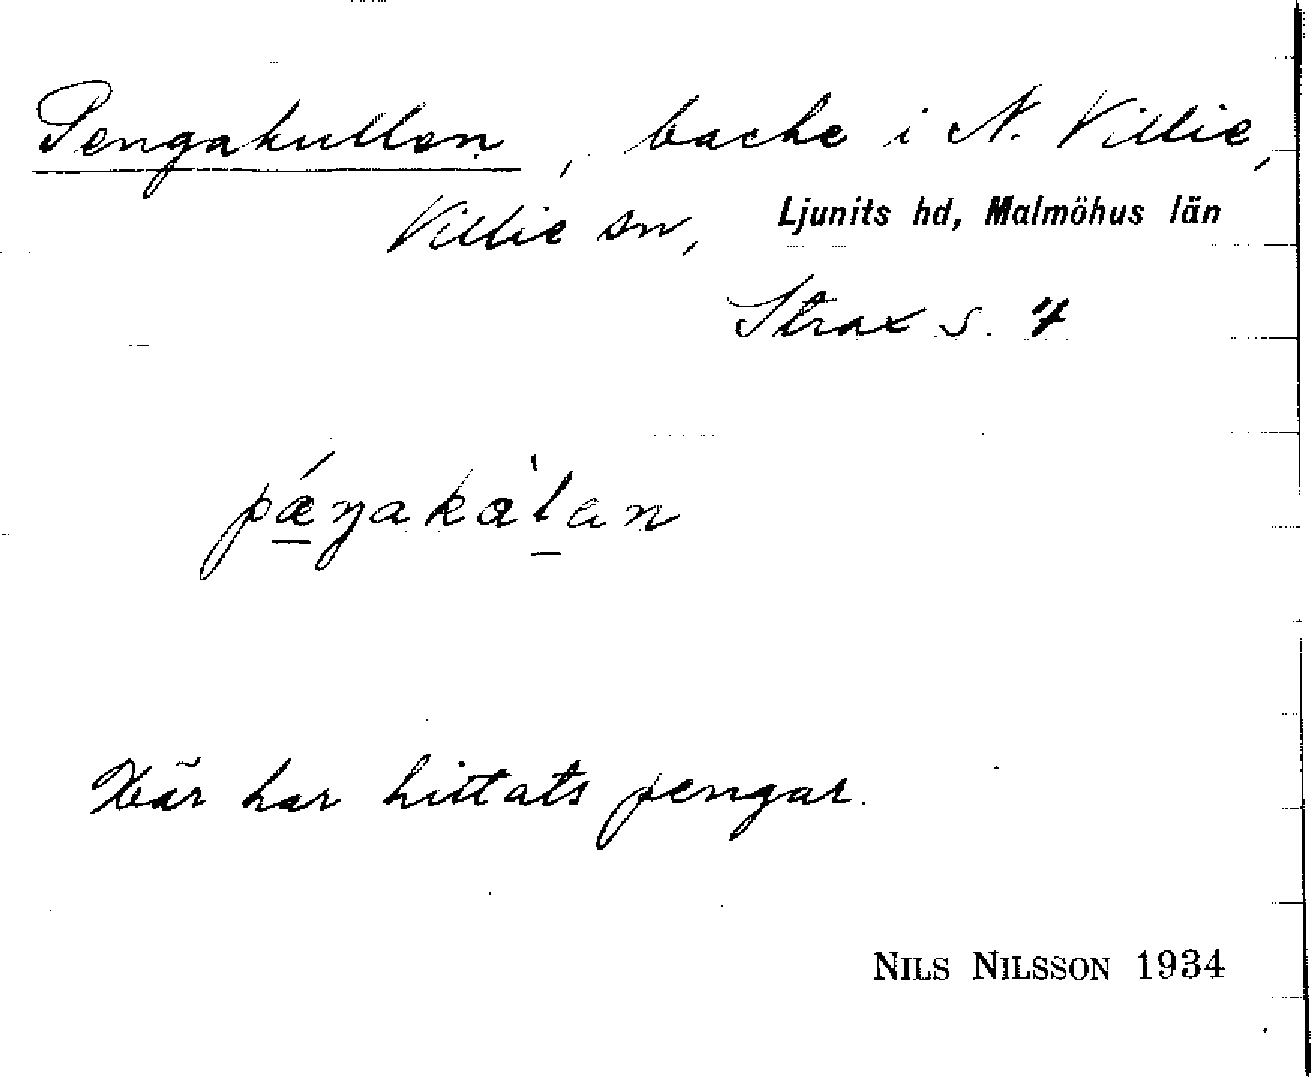 Pengakullen, backe i N. Villie,
Villie sn, Ljunits hd, Malmöhus län
Strax s. 7
pǽŋakàlan
Här har hittats pengar.
NILS NILSSON 1934